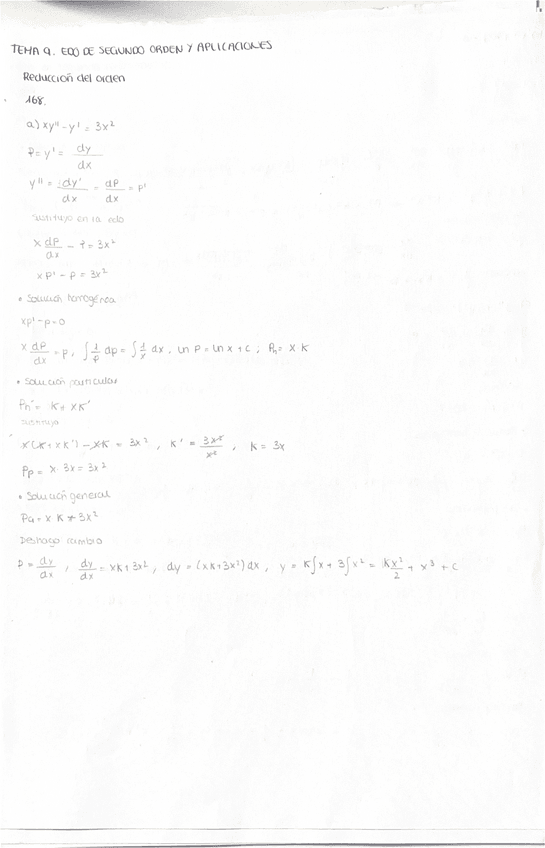 TEMA 9. EDO DE SEGUNDO ORDEN Y APLICACIONES
Reducción del orden
168.
a) xy'' - y' = 3x²
P = y' = dy/dx
y'' = dy'/dx = dP/dx = P'
sustituyo en la edo
x dP/dx - P = 3x²
xp' - p = 3x²
• Solución homogénea
xp' - p = 0
x dP/dx = p, ∫ 1/p dp = ∫ 1/x dx, ln P = ln x + c ; Pₕ = x K
• Solución particular
Pₕ' = K + xK'
sustituyo
x(K + xK') - xK = 3x², K' = 3x²/x², K = 3x
Pp = x · 3x = 3x²
• Solución general
PG = x K + 3x²
Deshago cambio
P = dy/dx, dy/dx = xk + 3x², dy = (xk + 3x²) dx, y = K∫x + 3∫x² = Kx²/2 + x³ + C